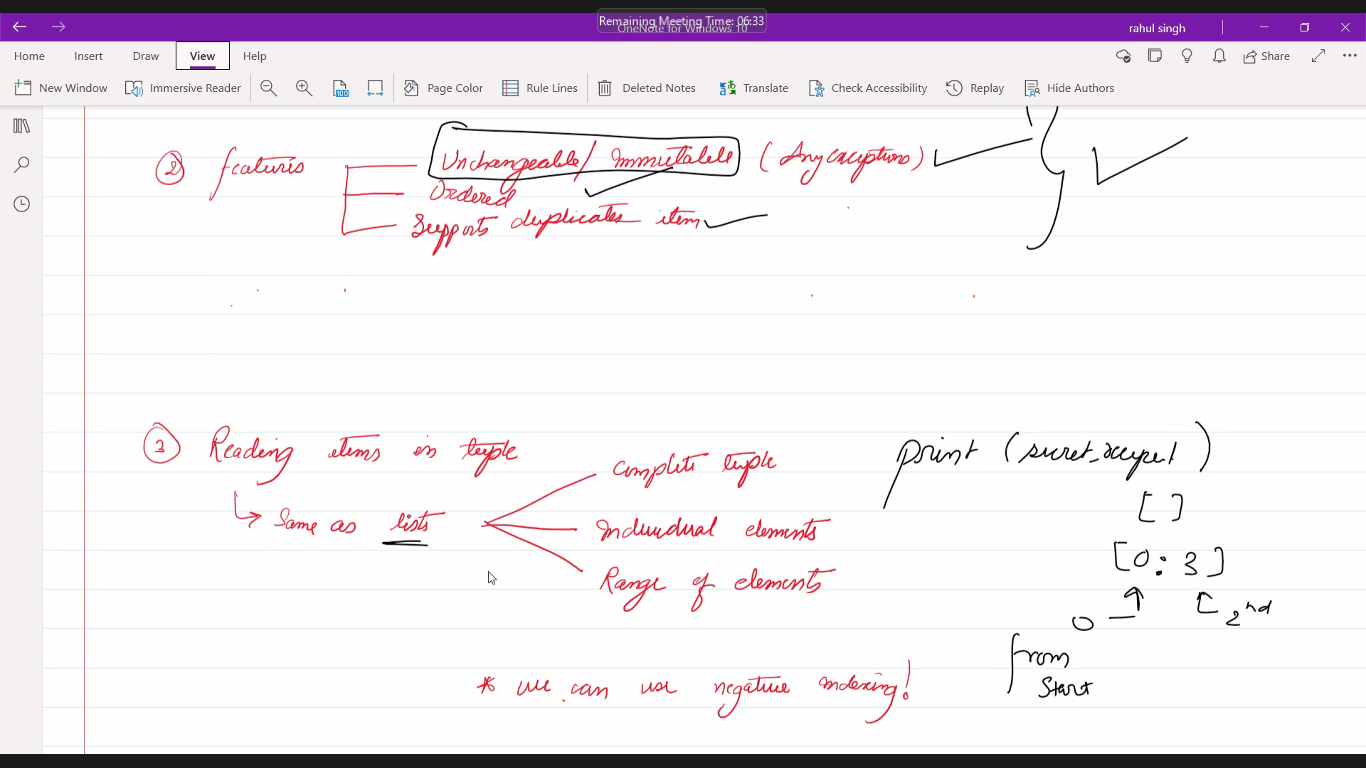 Remaining Meeting Time: 06:33
OneNote for Windows 10
rahul singh
Home Insert Draw View Help
Share
New Window Immersive Reader Page Color Rule Lines Deleted Notes Translate Check Accessibility Replay Hide Authors
② features
Unchangeable/ Immutable (Any exceptions)
Ordered
Supports duplicates item
③ Reading items in tuple
Complete tuple
print (secret_recipe1)
↳ Same as lists
Individual elements
[ ]
Range of elements
[0:3]
0
2nd
from
Start
* we can use negative indexing!